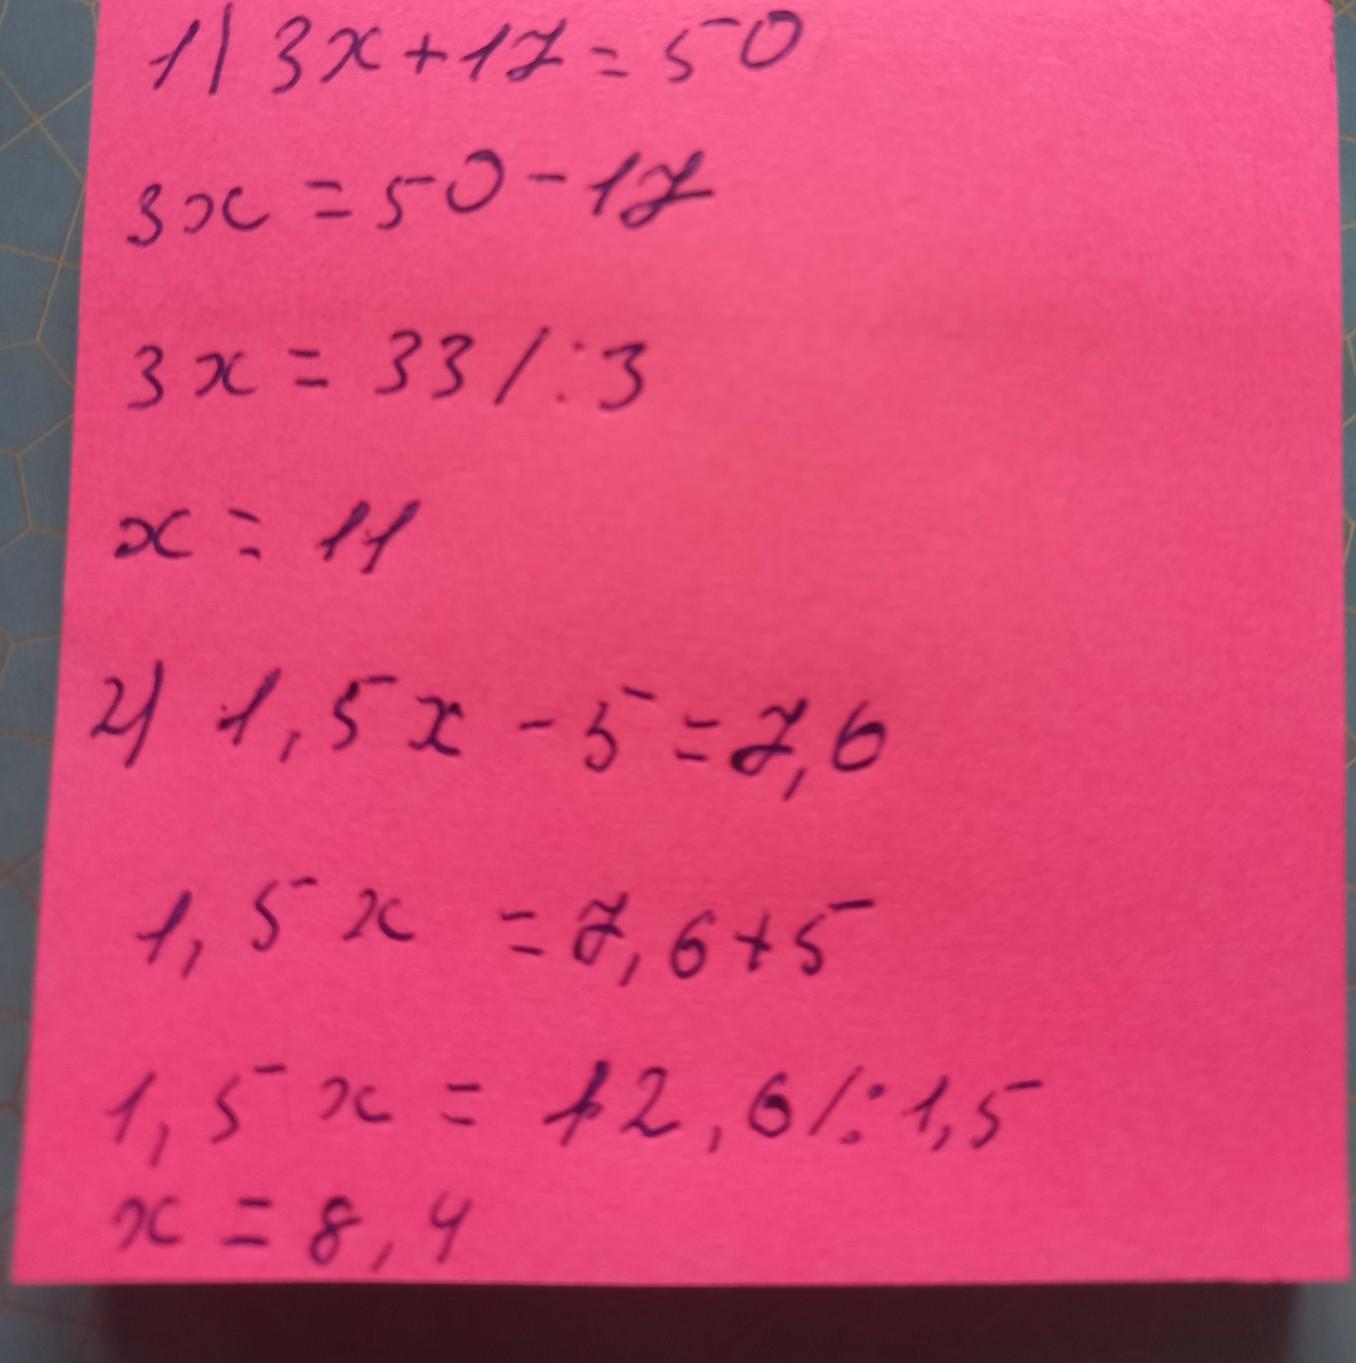 1) 3x+17=50
3x=50-17
3x=33/:3
x=11
2) 1,5x-5=7,6
1,5x=7,6+5
1,5x=12,6/:1,5
x=8,4